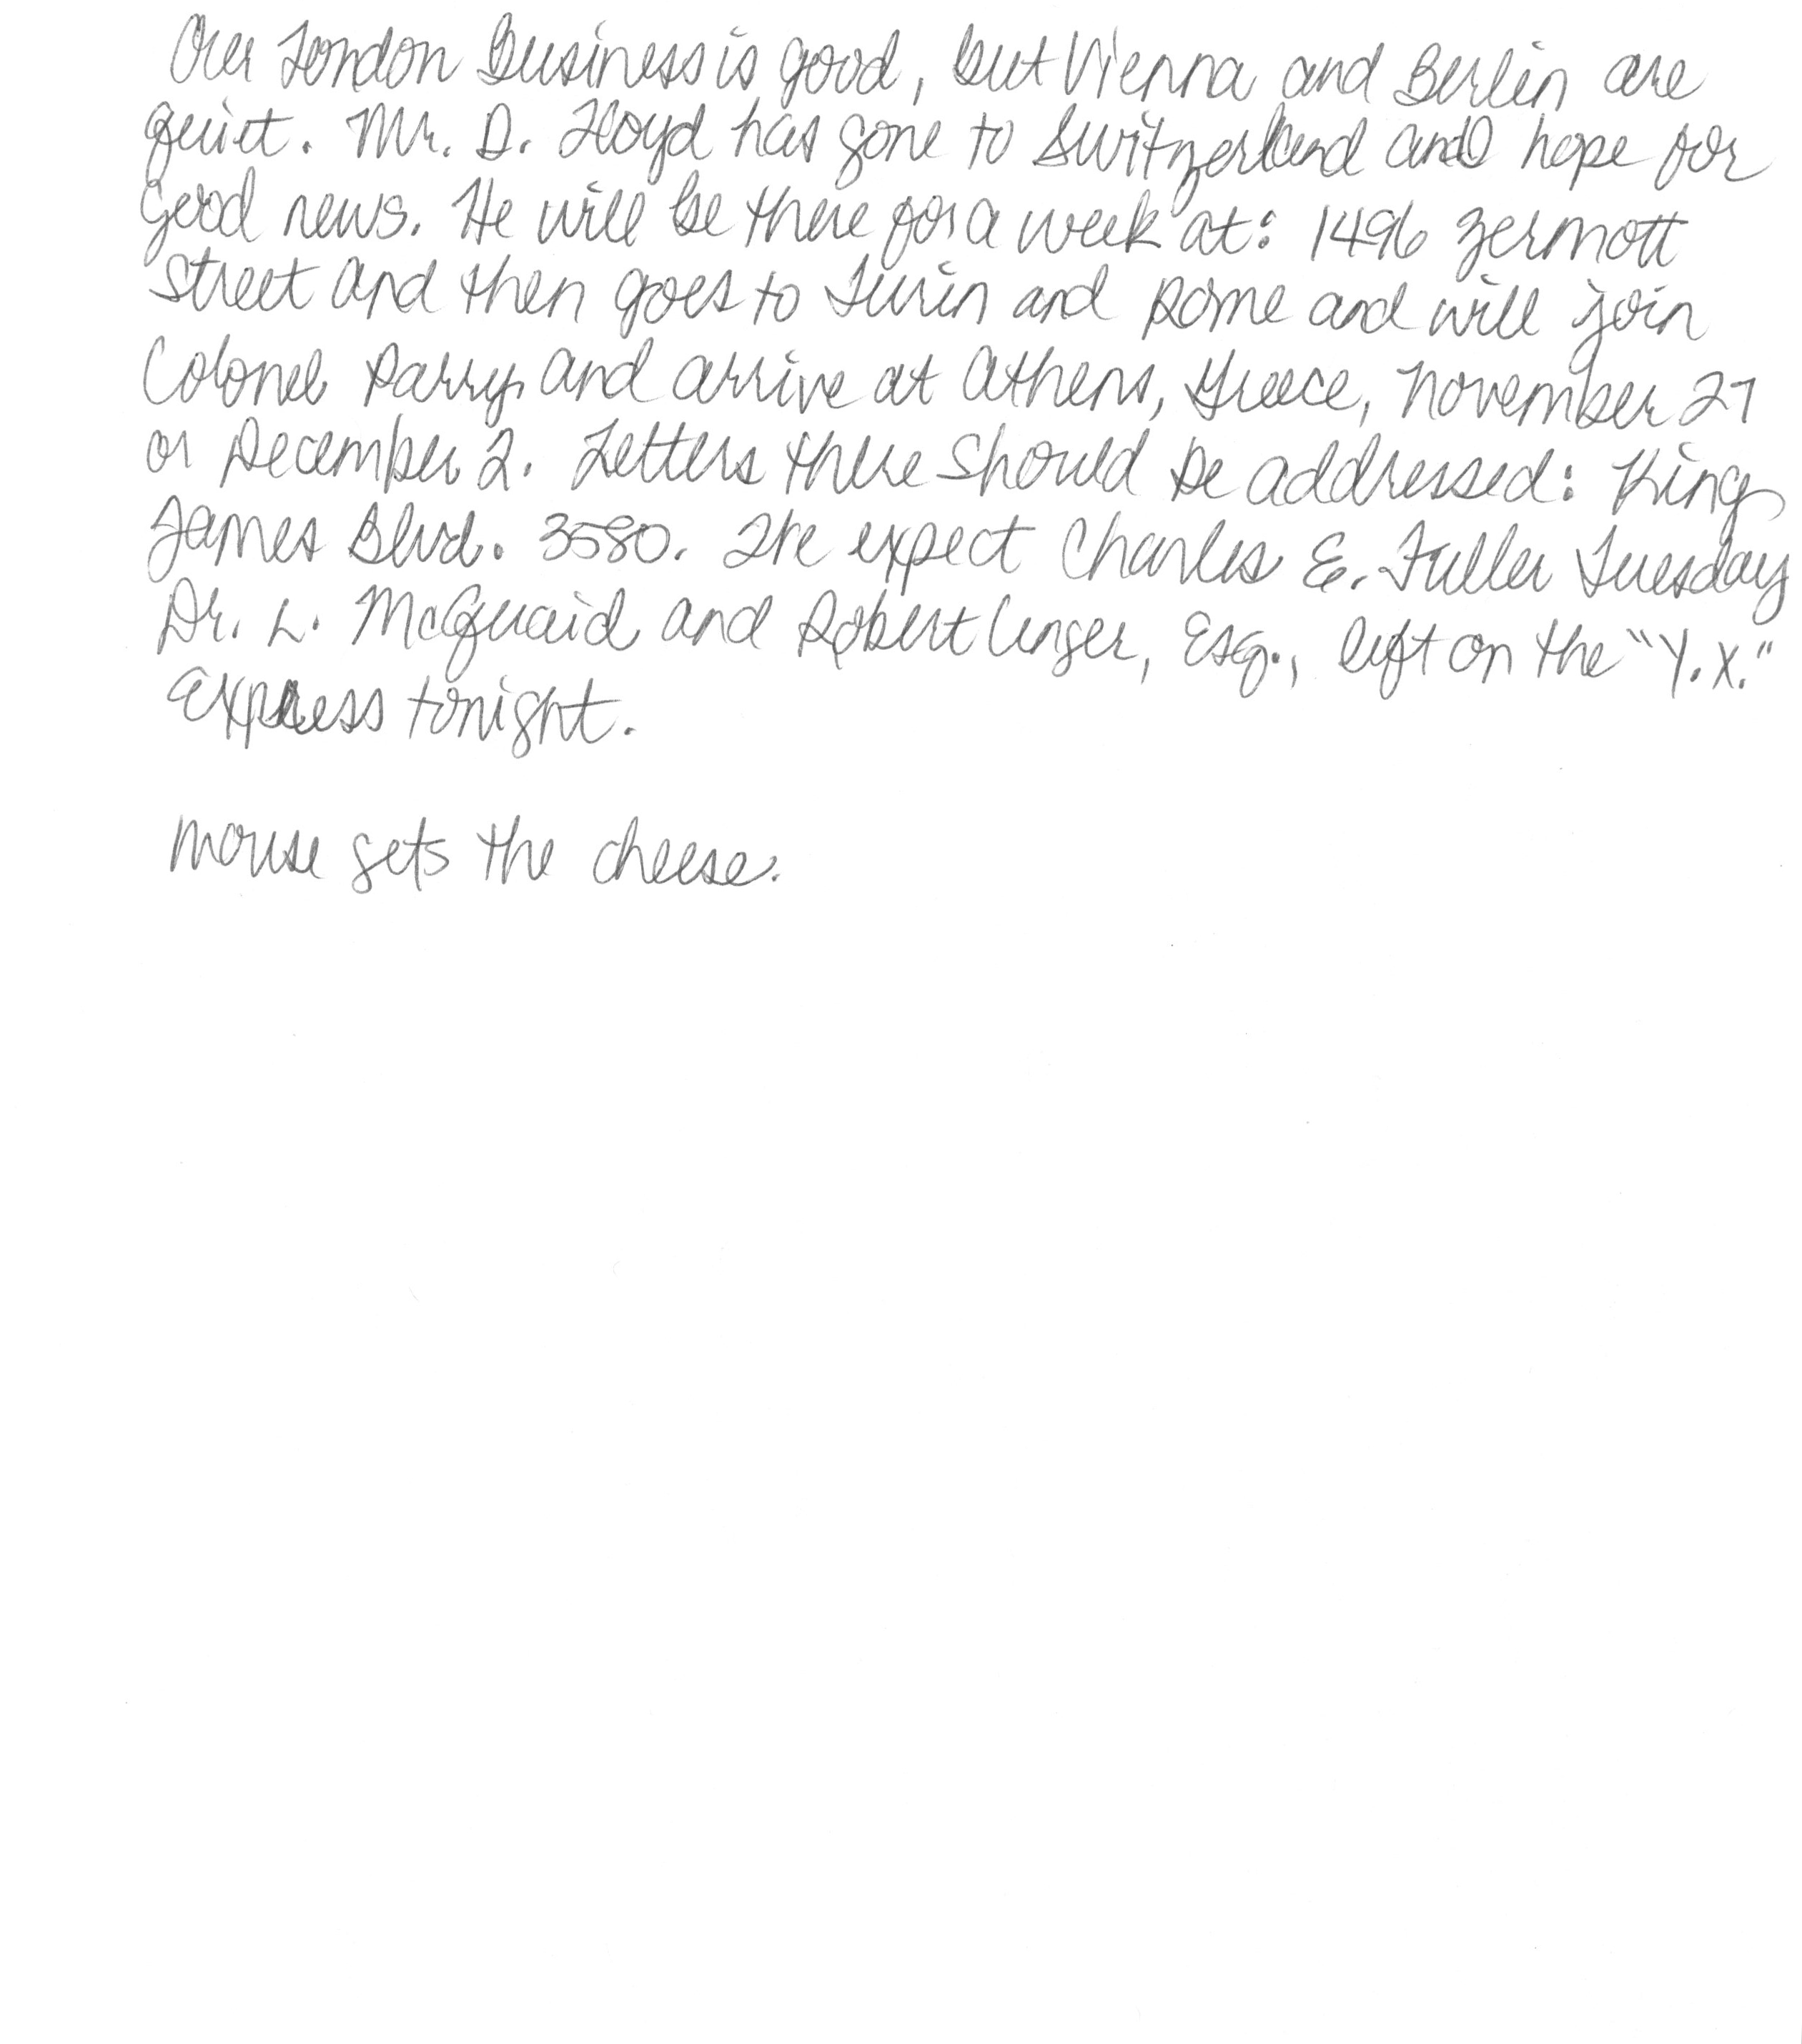 Our London Business is good, but Vienna and Berlin are
quiet. Mr. D. Lloyd has gone to Switzerland and hope for
Good news. He will be there for a week at: 1496 Zermott
Street and then goes to Turin and Rome and will join
Colonel Parry and arrive at Athens, Greece, November 27
or December 2. Letters there should be addressed: King
James Blvd. 3580. We expect Charles E. Fuller Tuesday
Dr. L. McQuaid and Robert Unger, Esq., left on the "Y.X."
Express tonight.
Mouse gets the cheese.